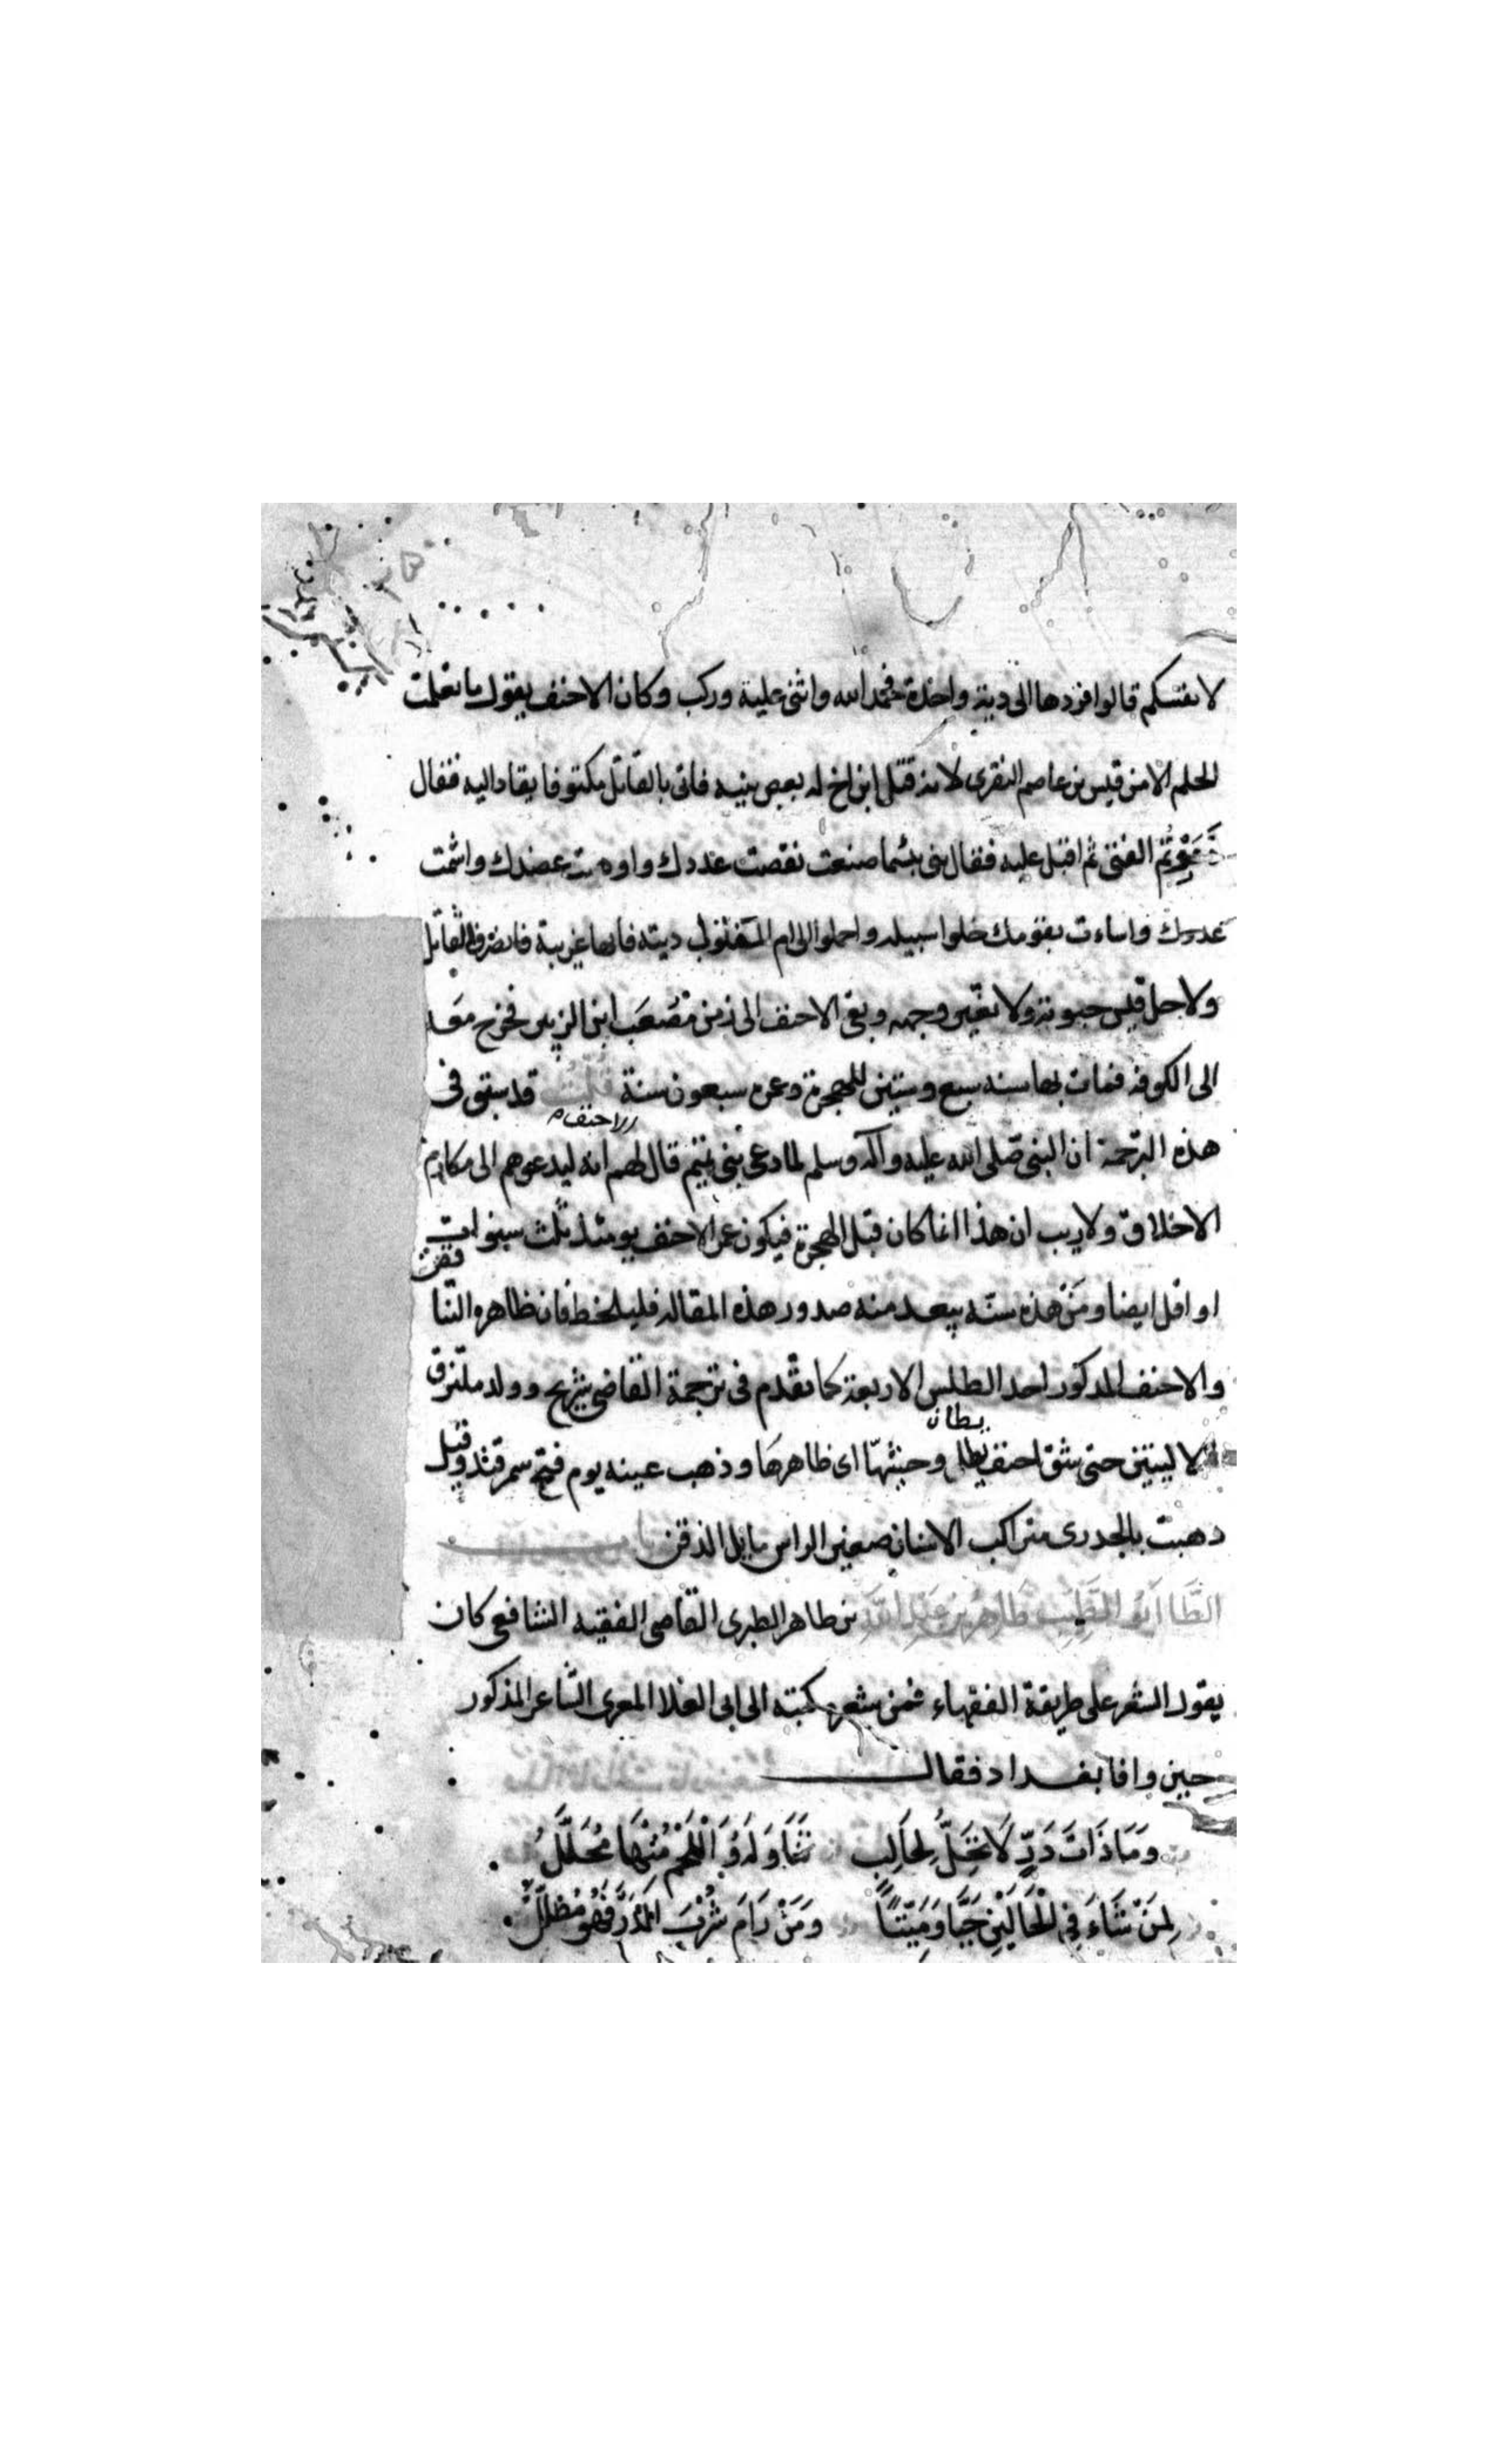 لانفسكم قالوا فردها الى دية واحدة فحمد الله واثنى علية وركب وكان الاحنف يقول ما تعلمت
الحلم الا من قيس بن عاصم المنقرى لانه قتل ابن اخ له بعض بنيه فاتى بالقاتل مكتوفا يقاد اليه فقال
الفتى ثم اقبل عليه فقال بنى بئسما صنعت نقصت عددك واوهنت عضدك واشمت
عدوك واساءت بقومك خلوا سبيله واحملوا الى ام المقتول ديته فانها غريبة فانصرف القاتل
ولا حل قيس حبوته ولا تغير وجهه وبقى الاحنف الى زمن مُصْعَب ابن الزبير فخرج معه
الى الكوفه فمات بها سنه سبع وستين للهجرة وعمره سبعون سنة قلت قد سبق فى
هذه الترجمة ان النبى صلى الله عليه وآله وسلم لما دعى بنى تميم قال لهم الاحنف انه ليدعوهم الى مكارم
الاخلاق ولا ريب ان هذا انما كان قبل الهجرة فيكون عمر الاحنف يومئذ ثلث سنوات
او اقل ايضا ومَنْ هذه سنّه يبعد منه صدور هذه المقاله فليلحظ فان ظاهره التنا
والاحنف المذكور احد الطلس الاربعة كما تقدم فى ترجمة القاضى شريح وولد ملتزق
الاليتين حتى شق احنف بطان وحشيها اى ظاهرها وذهب عينه يوم فتح سمرقند وقيل
ذهبت بالجدرى متراكب الاسنان صغير الراس مايل الذقن
الطَّا اَبُو الطَّيِّب طَاهِرُ بن عَبْدِ اللّٰهِ بن طاهر الطبرى القاضى الفقيه الشافعى كان
يقول الشعر على طريقة الفقهاء فمن شعره كتبه الى ابى العلا المعرى الشاعر المذكور
حين وافا بغداد فقال
وَمَا ذَاتَ دَرٍّ لَا يَحِلُّ لِحَالِب تَنَاوَلَهُ وَاللَّحْمُ مُنْهَا مُحَلَّلُ
لِمَنْ شَاءَ فِى الْحَالَيْنِ حَيًّا وَمَيِّتًا وَمَنْ رَامَ شُرْبَ الدَّرِّ فَهُوَ مُضَلَّلُ